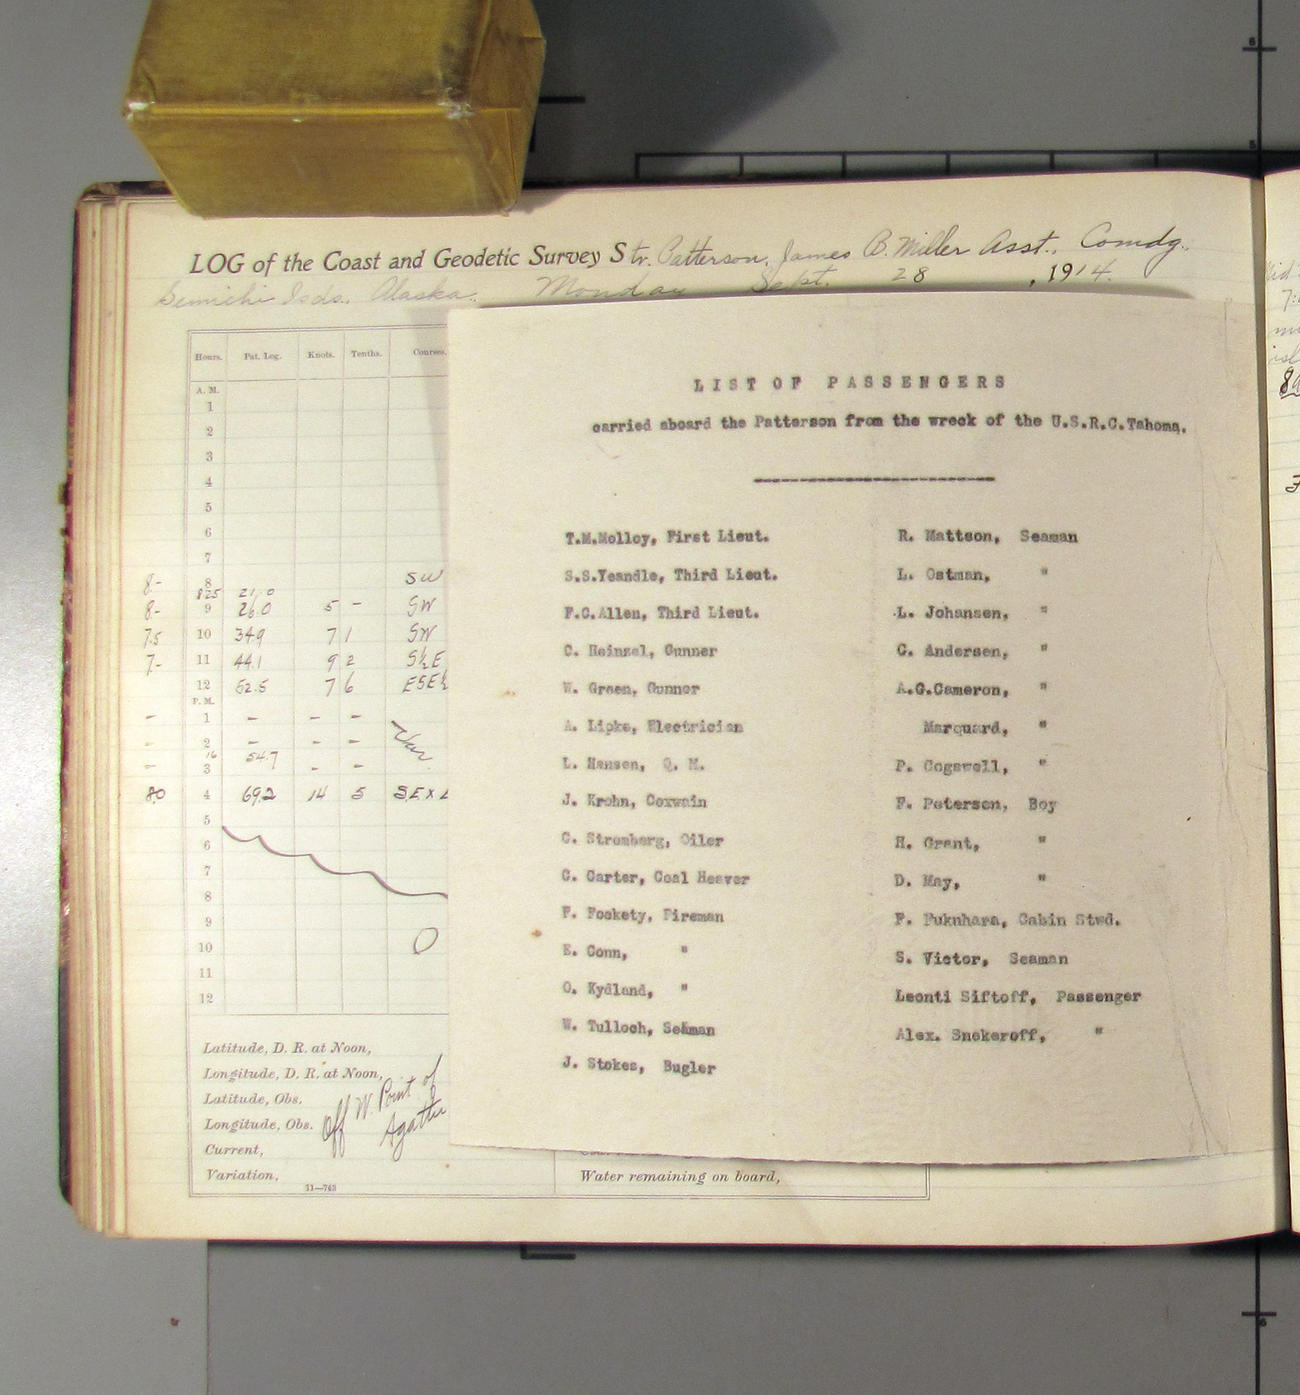 LOG of the Coast and Geodetic Survey Str. Patterson, James B. Miller Asst., Comdg.
Semichi Isds. Alaska. Monday Sept. 28, 1914.
Hours. Pat. Log. Knots. Tenths. Courses.
A. M.
1
2
3
4
5
6
7
8- 8 SW
8 25 21.0
8- 9 26.0 5 - SW
7.5 10 34.9 7 1 SW
7- 11 44.1 9 2 S½E
12 52.5 7 6 ESE½
P. M.
- 1 - - -
- 2 - - - Var
16 54.7
- 3 - -
80 4 69.2 14 5 SEx
5
6
7
8
9
10
11
12
Latitude, D. R. at Noon,
Longitude, D. R. at Noon,
Latitude, Obs.
Longitude, Obs.
Current,
Variation,
Off W. Point of
Agattu
11—743
Water remaining on board,
LIST OF PASSENGERS
carried aboard the Patterson from the wreck of the U.S.R.C.Tahoma.
T.M.Molloy, First Lieut.
S.S.Yeandle, Third Lieut.
F.C.Allen, Third Lieut.
C. Heinzel, Gunner
W. Green, Gunner
A. Lipke, Electrician
L. Hansen, Q. M.
J. Krohn, Coxwain
C. Stromberg, Oiler
C. Carter, Coal Heaver
F. Foskety, Fireman
E. Conn, "
O. Kydland, "
W. Tulloch, Seaman
J. Stokes, Bugler
R. Mattson, Seaman
L. Ostman, "
L. Johansen, "
C. Andersen, "
A.G.Cameron, "
Marquard, "
P. Cogswell, "
F. Peterson, Boy
H. Grant, "
D. May, "
F. Fuknhara, Cabin Stwd.
S. Victor, Seaman
Leonti Siftoff, Passenger
Alex. Snekeroff, "